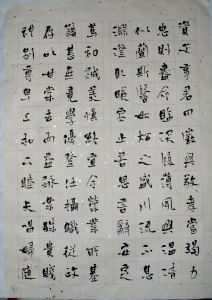 資父事君曰嚴與敬孝當竭力
忠則盡命臨深履薄夙興溫凊
似蘭斯馨如松之盛川流不息
淵澄取暎容止若思言辭安定
篤初誠美慎終宜令榮業所基
籍甚無竟學優登仕攝職從政
存以甘棠去而益詠樂殊貴賤
禮別尊卑上和下睦夫唱婦隨